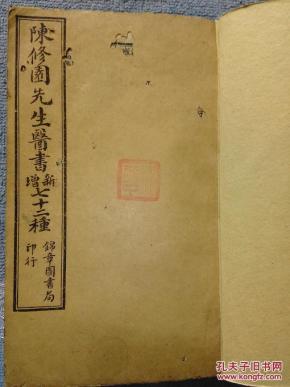 陳修園先生醫書新增七十二種
錦章圖書局印行
孔夫子旧书网